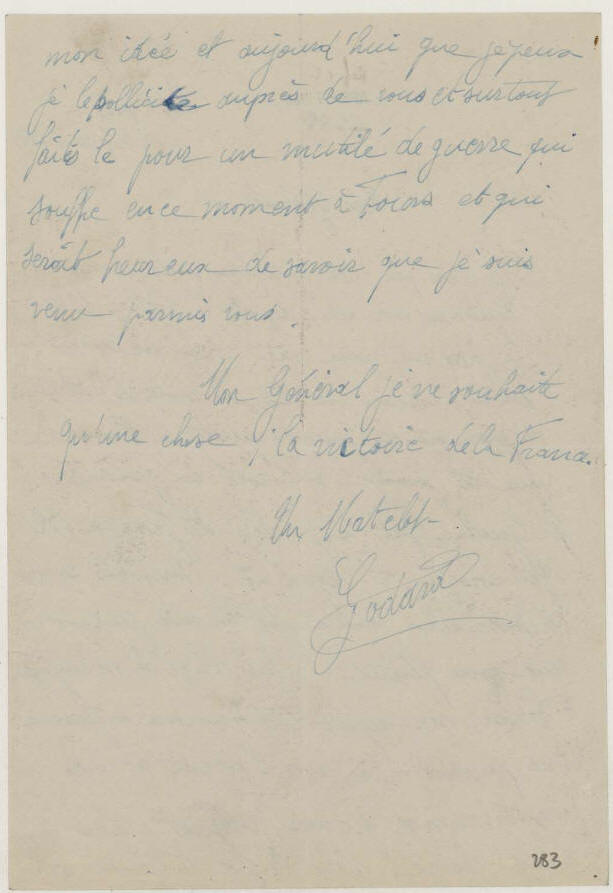 mon idée et aujourd'hui que je peux
je le sollicite auprès de vous et surtout
faites le pour un mutilé de guerre qui
souffre en ce moment à Tours et qui
serait heureux de savoir que je suis
venu parmis vous.
Mon Général je ne souhaite
qu'une chose, la victoire de la France.
Un Matelot
Godard
283